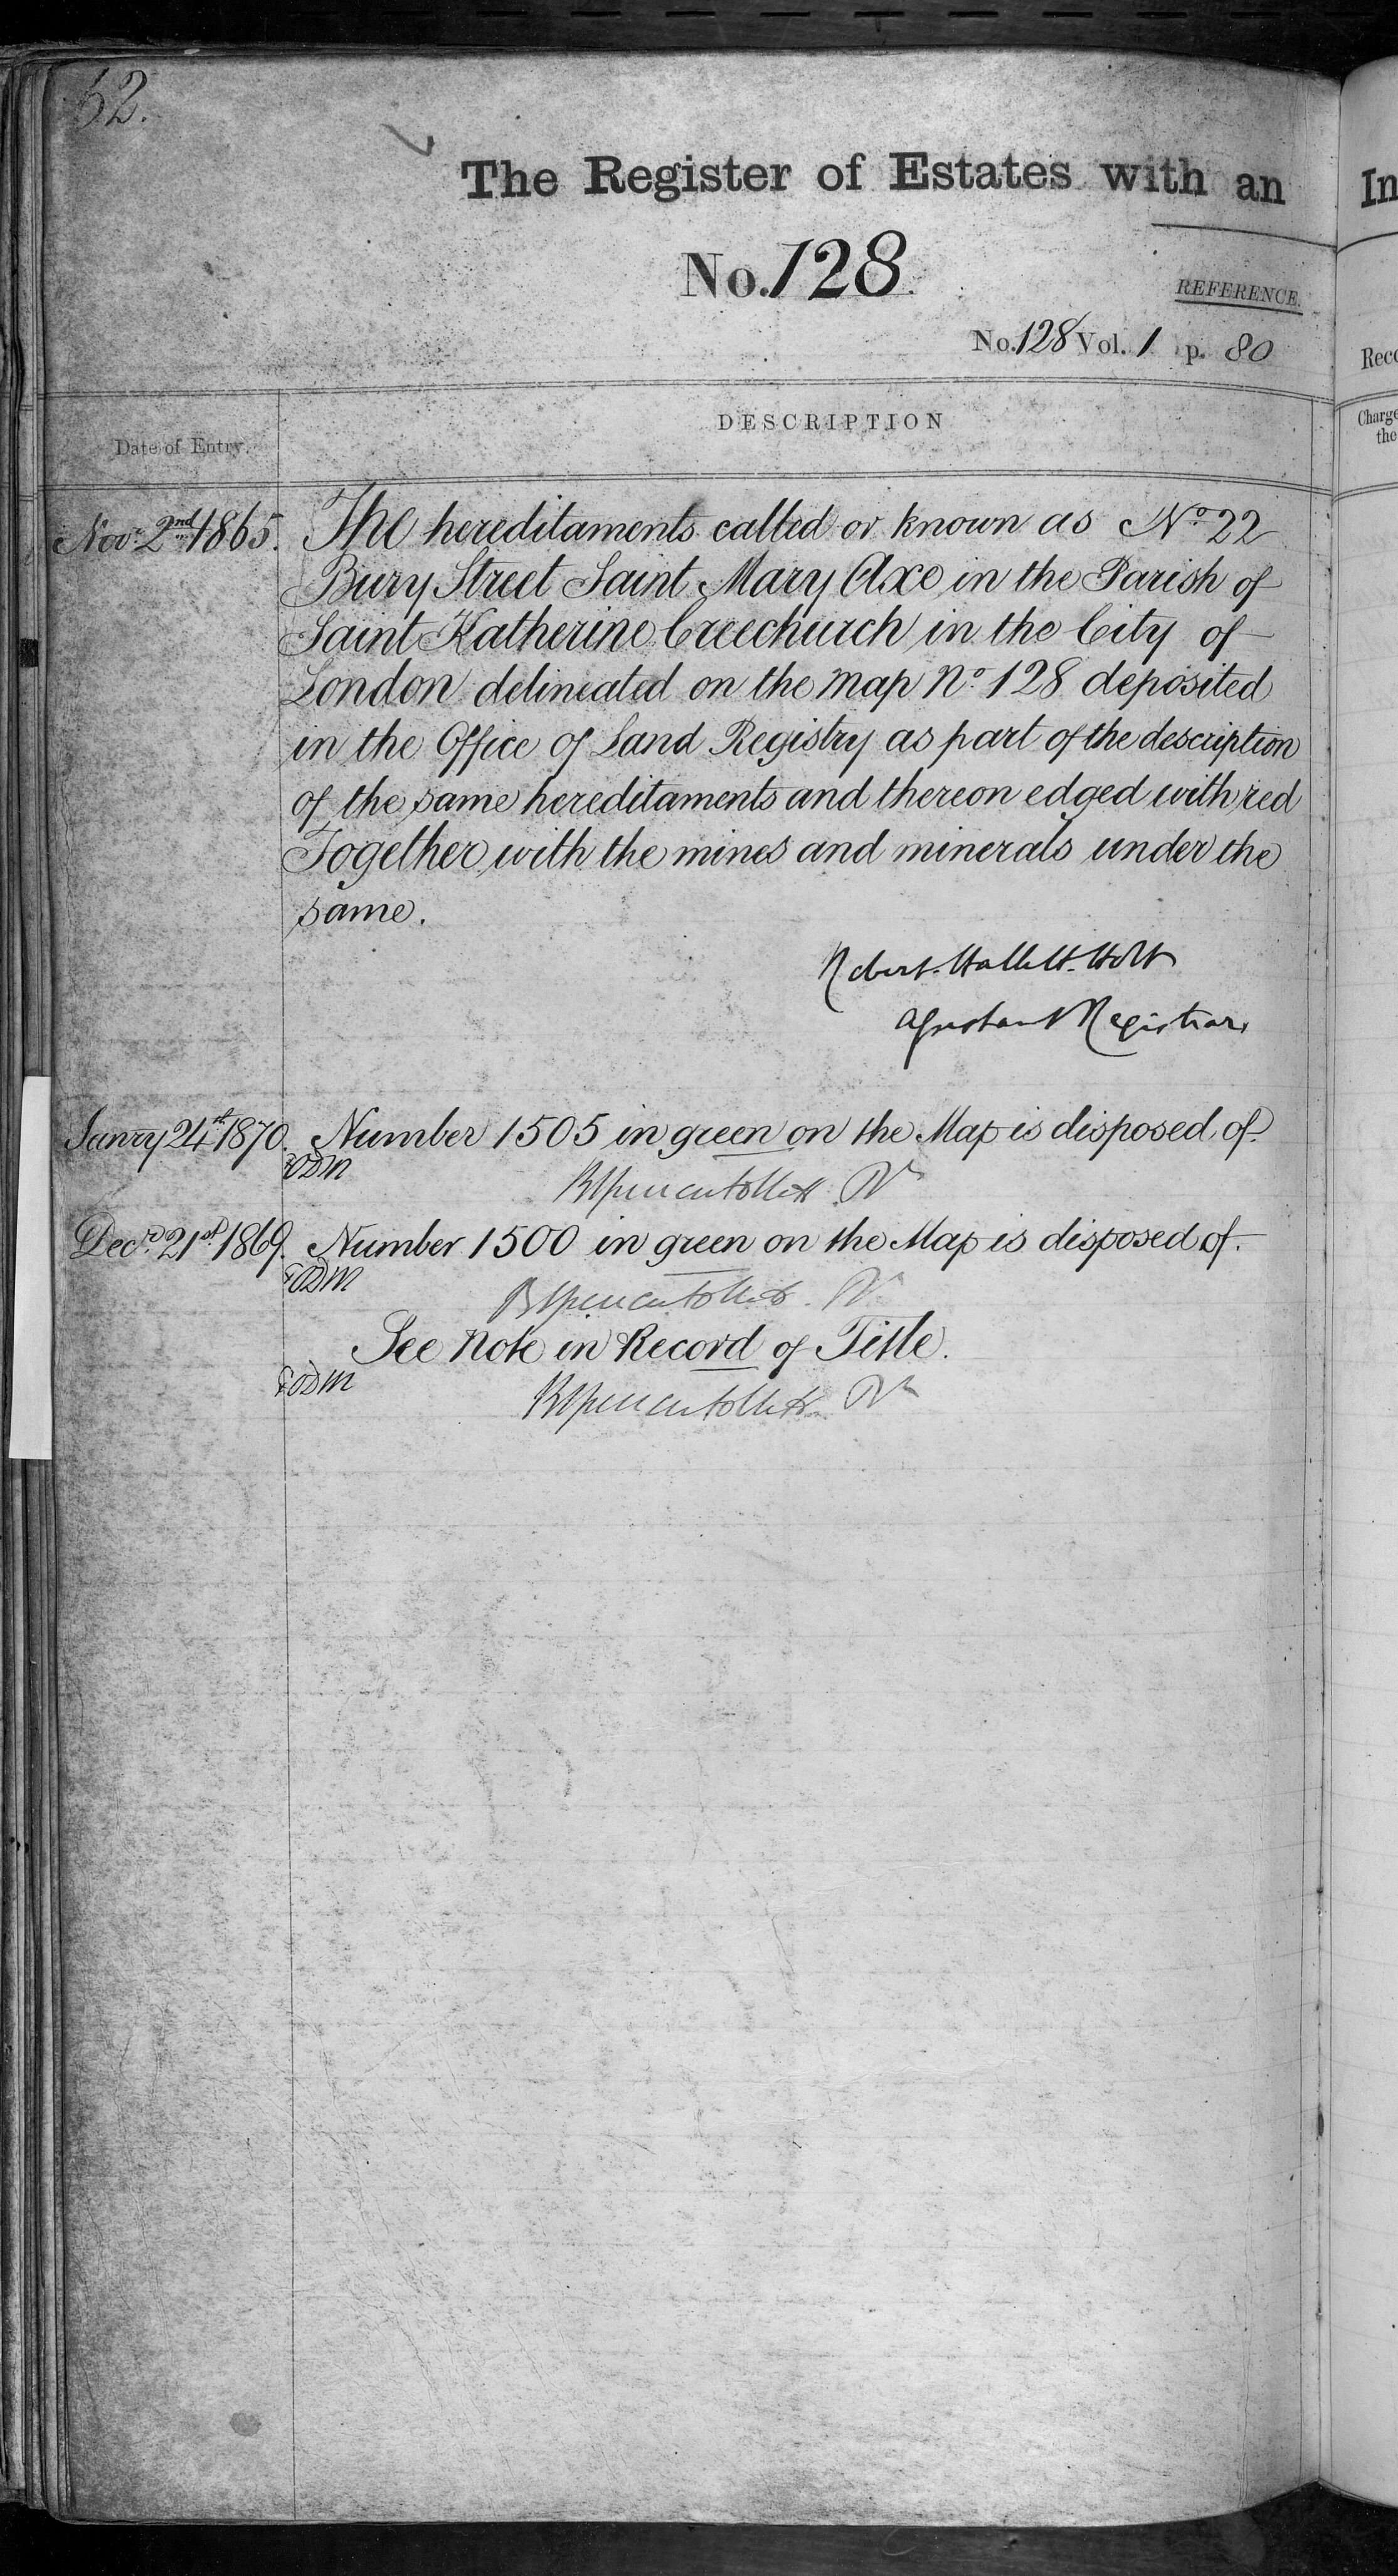 52.
The Register of Estates with an
No. 128.
REFERENCE.
No. 128 Vol. 1 p. 80
Date of Entry.
DESCRIPTION
Novr. 2nd 1865. The hereditaments called or known as No. 22
Bury Street Saint Mary Axe in the Parish of
Saint Katherine Creechurch in the City of
London delineated on the map No. 128 deposited
in the Office of Land Registry as part of the description
of the same hereditaments and thereon edged with red
Together with the mines and minerals under the
same.
Robert Hallett Holt
Assistant Registrar
Janry 24th 1870. Number 1505 in green on the Map is disposed of.
Decr. 21st 1869. Number 1500 in green on the Map is disposed of.
See Note in Record of Title.
In
Reco
Charge
the